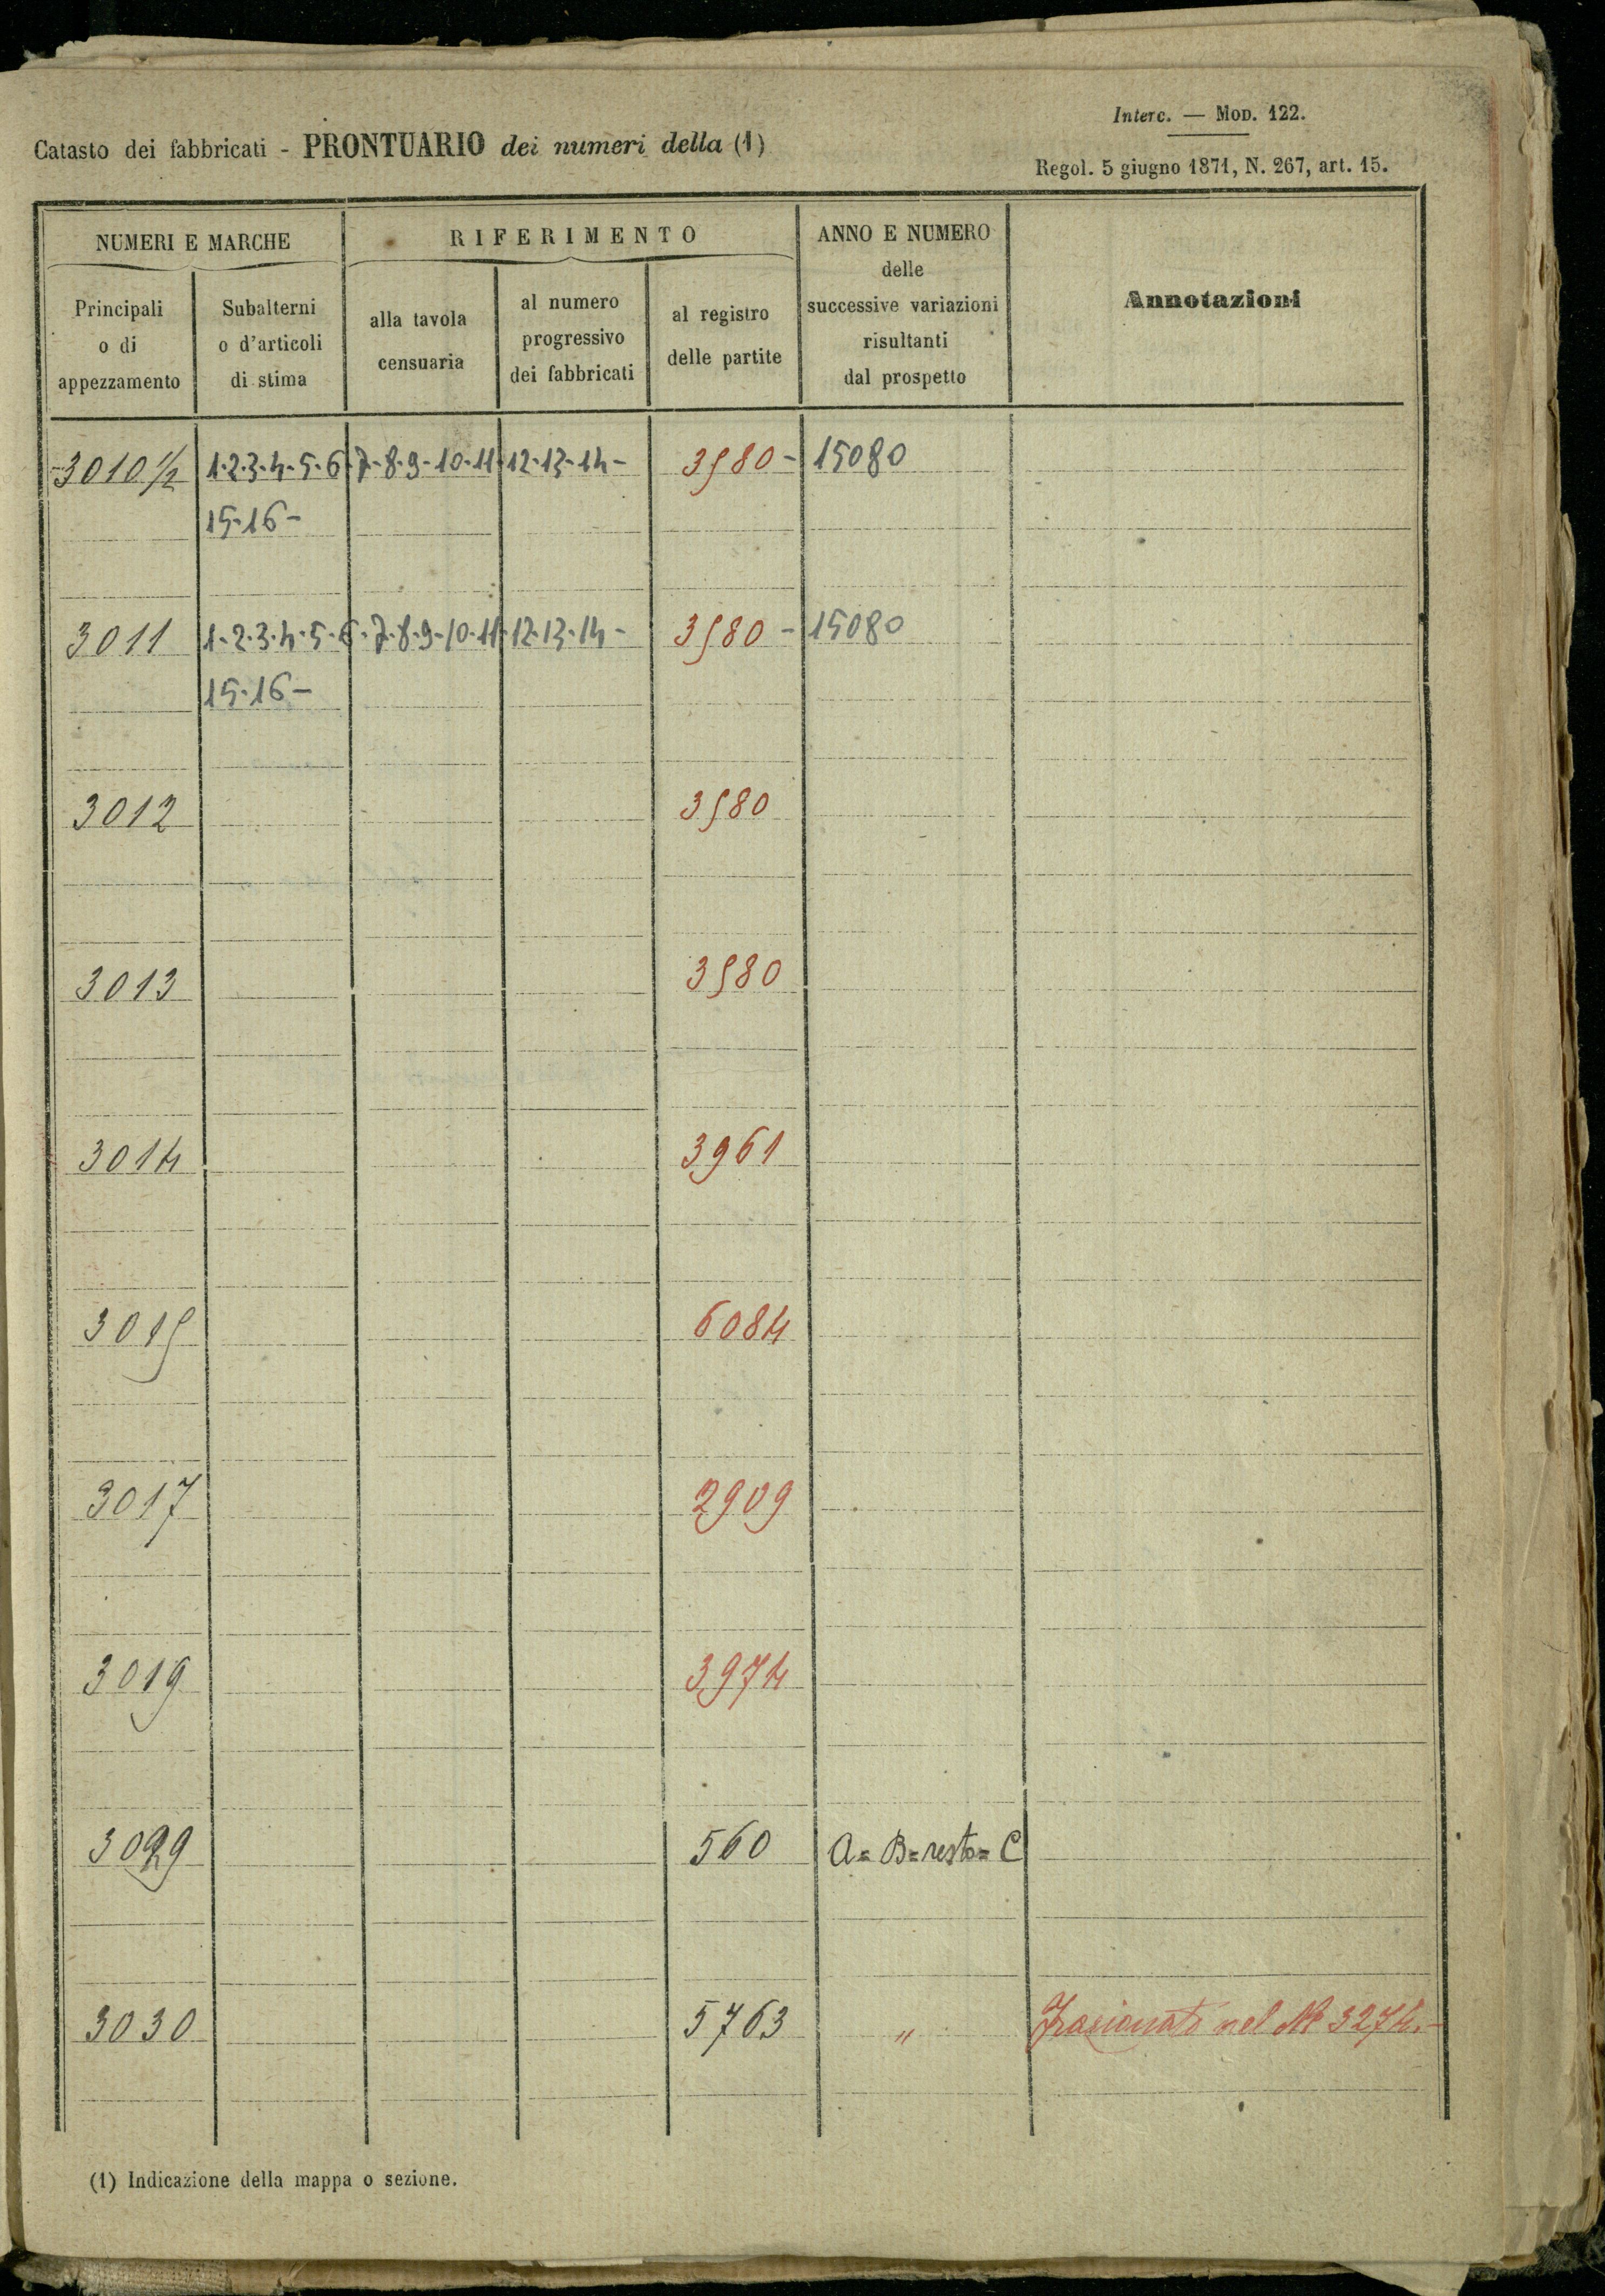 Interc. — MOD. 122.
Catasto dei fabbricati - PRONTUARIO dei numeri della (1)
Regol. 5 giugno 1871, N. 267, art. 15.
NUMERI E MARCHE
RIFERIMENTO
ANNO E NUMERO
delle
successive variazioni
risultanti
dal prospetto
Annotazioni
Principali
o di
appezzamento
Subalterni
o d'articoli
di stima
alla tavola
censuaria
al numero
progressivo
dei fabbricati
al registro
delle partite
3010 1/2 1-2-3-4-5-6-7-8-9-10-11-12-13-14- 3580 - 15080
15-16-
3011 1-2-3-4-5-6-7-8-9-10-11-12-13-14- 3580 - 15080
15-16-
3012 3580
3013 3580
3014 3961
3015 6084
3017 2909
3019 3974
3029 560 A= B=resto= C
3030 5763 " Frazionato nel N° 3274.-
(1) Indicazione della mappa o sezione.